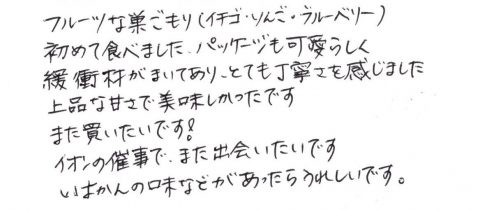 フルーツな巣ごもり(イチゴ・りんご・ブルーベリー)
初めて食べました、パッケージも可愛らしく
緩衝材がまいてあり、とても丁寧さを感じました
上品な甘さで美味しかったです
また買いたいです!
イオンの催事で、また出会いたいです
いよかんの味などがあったらうれしいです。